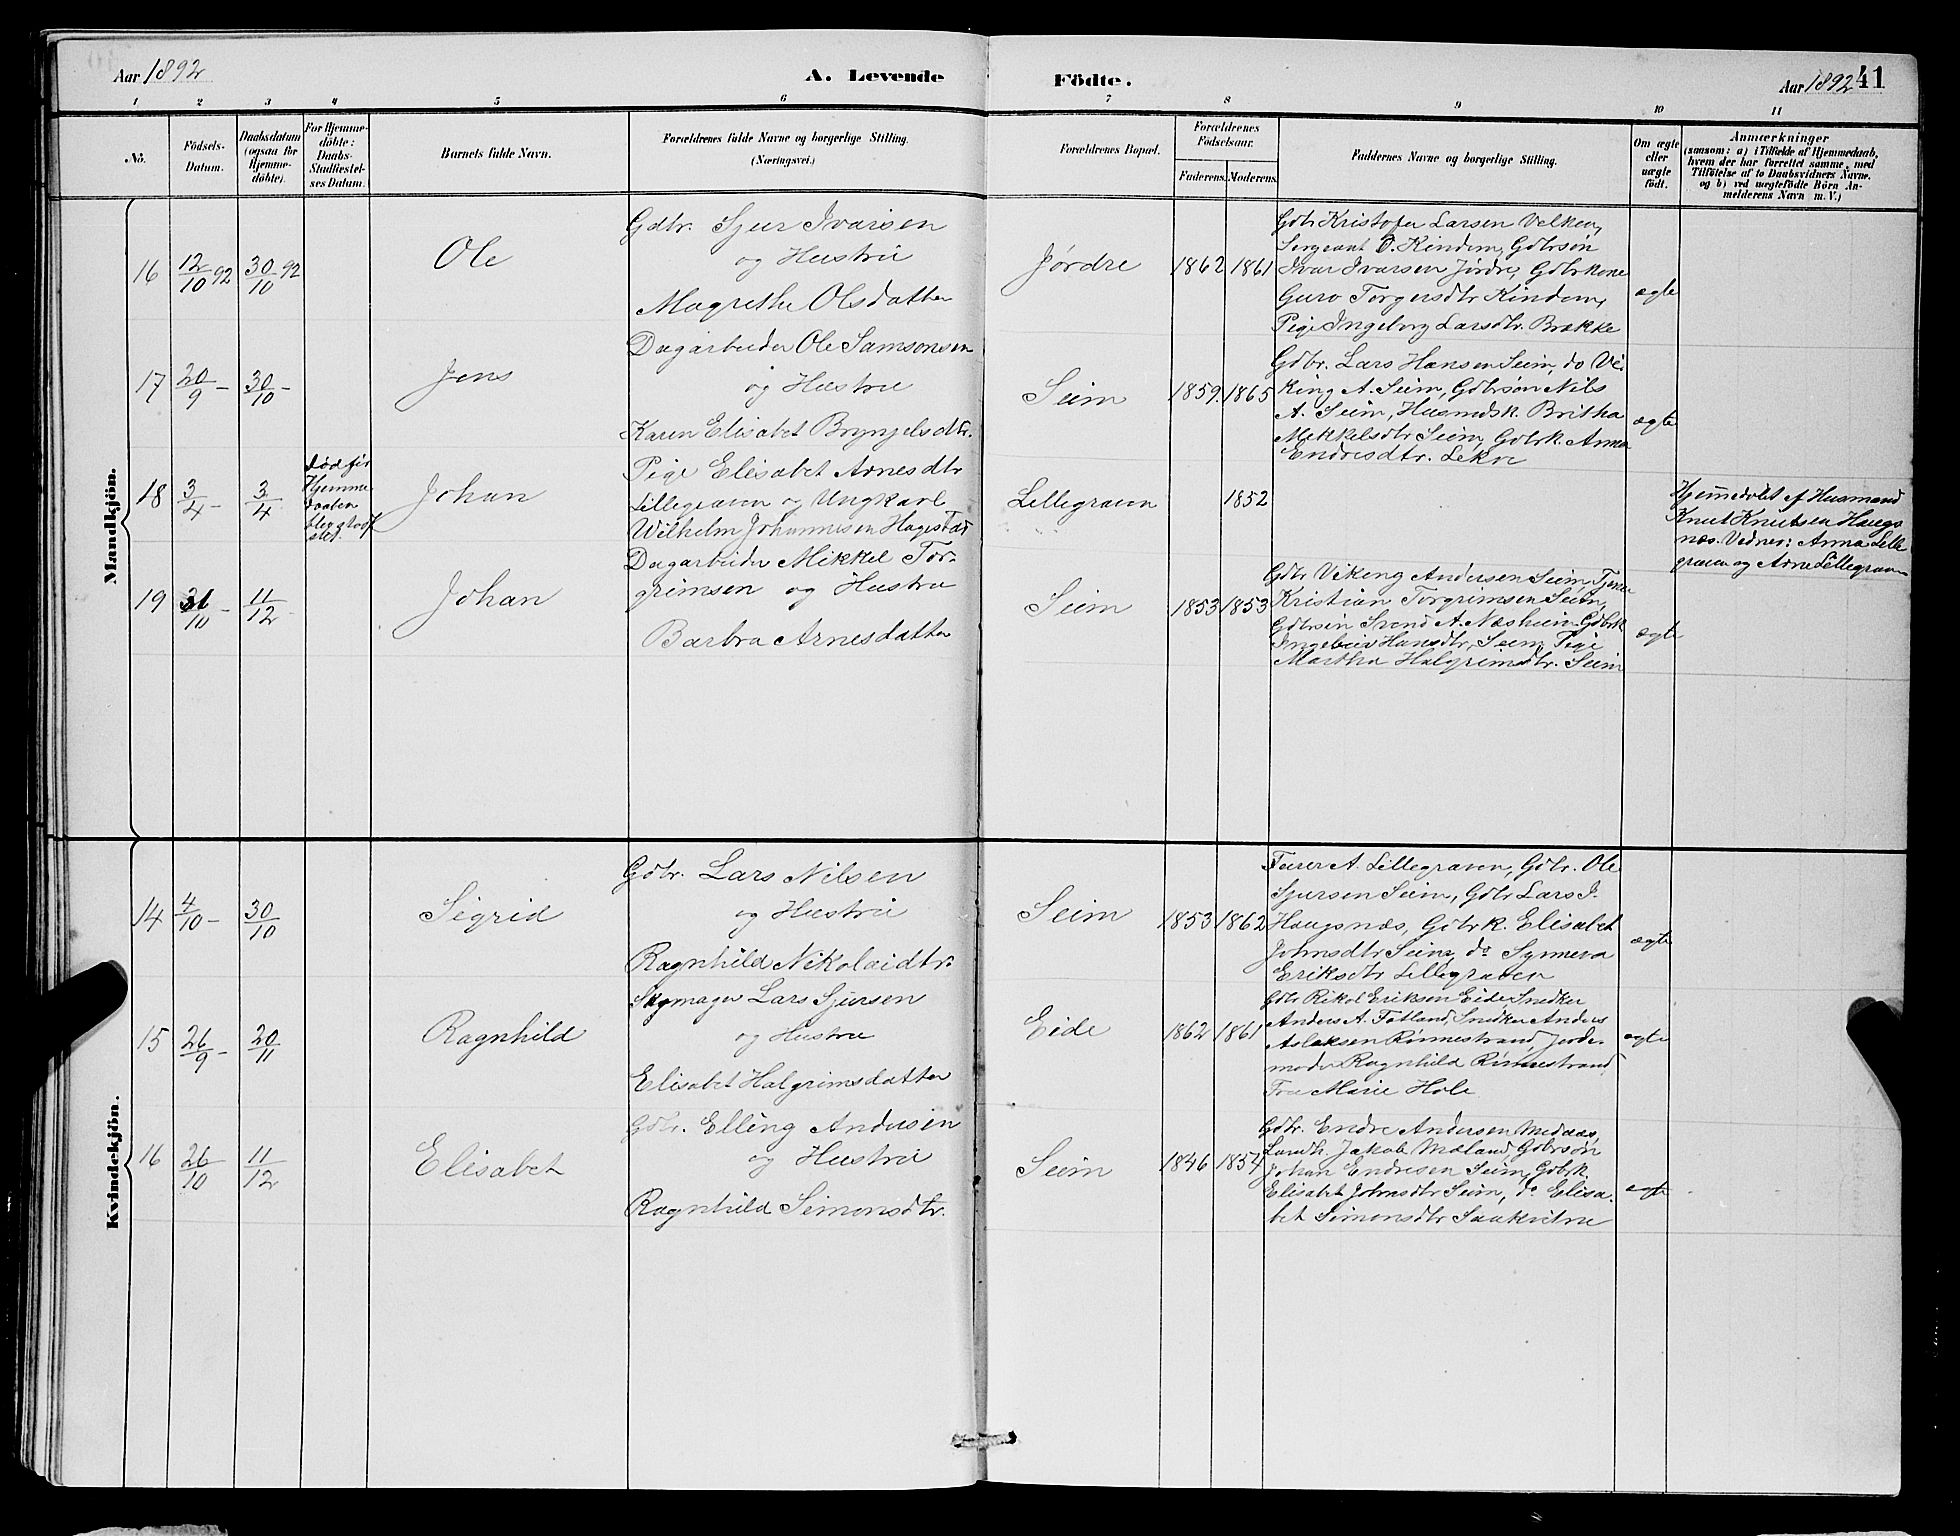 Aar 1892
A. Levende
Födte.
Aar 1892
41
1 2 3 4 5 6 7 8 9 10 11
No.
Födsels-
Datum.
Daabsdatum
(ogsaa for
Hjemme-
döbte).
For Hjemme-
döbte:
Daabs-
Stadfæstel-
ses Datum.
Barnets fulde Navn.
Forældrenes fulde Navne og borgerlige Stilling.
(Næringsvei.)
Forældrenes Bopæl.
Forældrenes
Födselsaar.
Faderens. Moderens.
Faddernes Navne og borgerlige Stilling.
Om ægte
eller
uægte
födt.
Anmærkninger
(saasom: a) i Tilfælde af Hjemmedaab,
hvem der har forrettet samme, med
Tilföielse af to Daabsvidners Navne.
og b) ved uægtefödte Börn An-
melderens Navn m. V.)
Mandkjön.
16
12/10 92
30/10 92
Ole
Gdbr. Sjur Ivarsen
og Hustru
Magrethe Olsdatter
Jørdre
1862 1861
Gdbr Kristofer Larsen Velken,
Sergeant O. Kindem, Gdbrsøn
Ivar Ivarsen Jørdre, Gdbrkone
Guro Torgersdtr Kindem,
Pige Ingeborg Larsdtr. Brække
ægte
17
20/9 -
30/10 -
Jens
Dagarbeider Ole Samsonsen
og Hustru
Karen Elisabet Brynjelsdtr.
Seim
1859. 1865
Gdbr. Lars Hansen Seim, do Vi-
king A. Seim, Gdbrsøn Nils
A. Seim, Husmdsk. Britha
Mikkelsdtr Seim, Gdbrk. Anna
Endresdtr. Lekve
ægte
18
3/4 -
3/4
død før
Hjemme
daaben
blev stadf
stet.
Johan
Pige Elisabet Arnesdtr
Lillegraven og Ungkarl
Wilhelm Johannesen Hagestad
Lillegraven
1852
Hjemmedøbt af Husmand
Knut Knutsen Haugs
næs. Vidner: Anna Lille
graven og Arne Lillegraven
19
31/10 -
11/12
Johan
Dagarbeider Mikkel Tor-
grimsen og Hustru
Barbra Arnesdatter
Seim
1853 1853
Gdbr Viking Andersen Seim, Tjener
Kristian Torgrimsen Seim,
Gdbrsøn Svend A. Næsheim Gdbrk
Ingebior Hansdtr. Seim, Pige
Martha Halgrimsdtr. Seim
ægte
Kvindekjön.
14
4/10 -
30/10
Sigrid
Gdbr. Lars Nilsen
og Hustru
Ragnhild Nikolaidtr.
Seim
1853 1862
A. Lillegraven, Gdbr. Ole
Sjursen Seim, Gdbr Lars J.
Haugsnæs, Gdbrk. Elisabet
Johnsdtr Seim, do Synneva
Eriksdtr Lillegraven
ægte
15
26/9 -
20/11
Ragnhild
Skomager Lars Sjursen
og Hustru
Elisabet Halgrimsdatter
Eide
1862 1861
Gdbr Rikol Eriksen Eide Snedker
Anders A. Føtland, Snedker Anders
Aslaksen Rönnestrand, Jorde-
moder Ragnhild Rönnestrand,
Fru Marie Hole
ægte
16
26/10
11/12
Elisabet
Gdbr. Elling Andersen
og Hustru
Ragnhild Simonsdtr.
Seim
1846 1854
Gdbr. Endre Andersen Medaas,
Landh. Jakob Moland, Gdbrsøn
Johan Endresen Seim, Gdbrk
Elisabet Johnsdtr Seim, do Elisa-
bet Simonsdtr Saakvitne
ægte